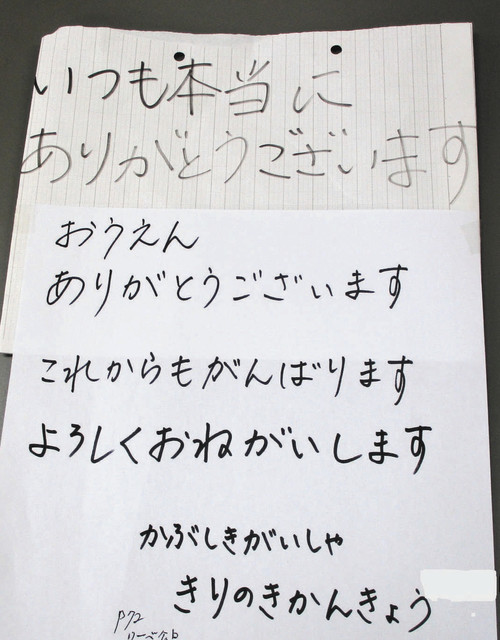 いつも本当に
ありがとうございます
おうえん
ありがとうございます
これからもがんばります
よろしくおねがいします
かぶしきがいしゃ
きりのきかんきょう
P72